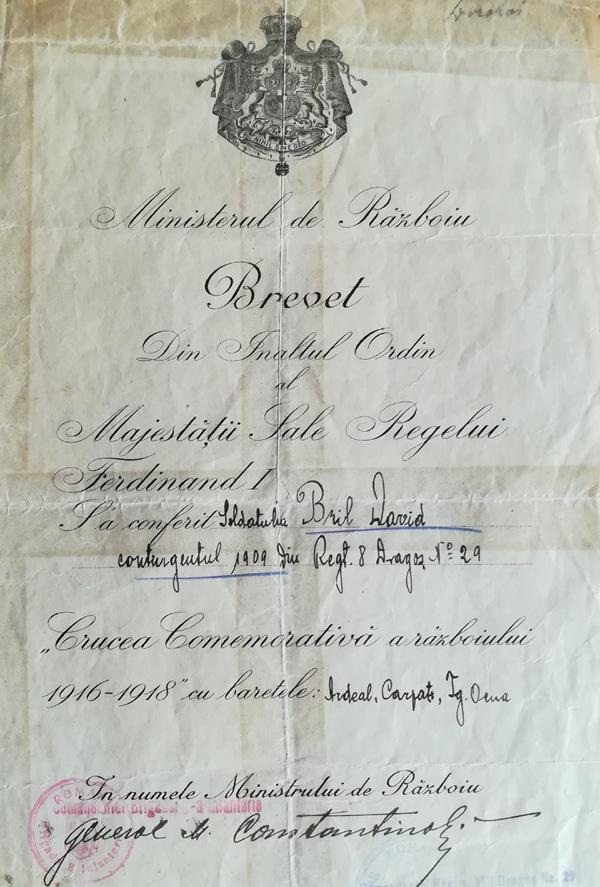 NIHIL SINE DEO
Ministerul de Răzvoiu
Brevet
Din Inaltul Ordin
al
Majestății Sale Regelui
Ferdinand I
S'a conferit Soldatului Bril David
contingentul 1909 din Regt. 8 Dragoș No 29
„Crucea Comemorativă a războiului
1916-1918" cu baretele: Ardeal, Carpați, Tg. Ocna
In numele Ministrului de Răzvoiu
Comandantul Brigăzei -a Infanterie
General M. Constantin
Dragoș No. 29